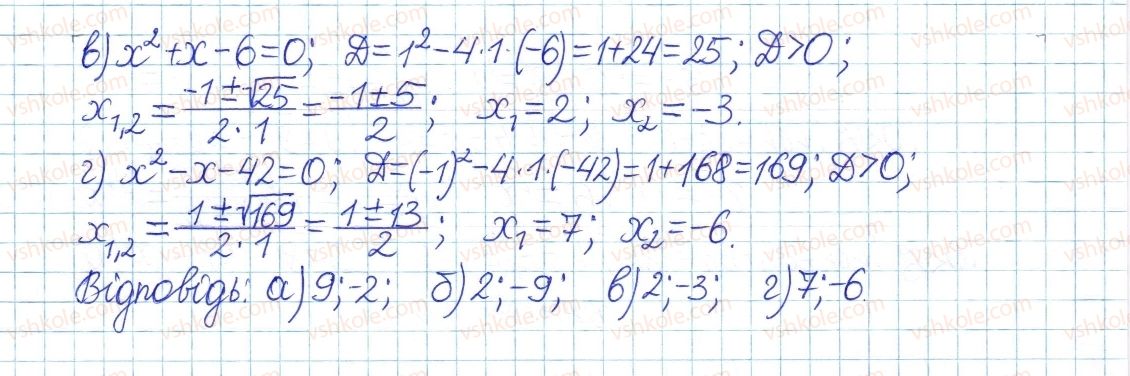 в) x² + x − 6 = 0; Д = 1² − 4·1·(−6) = 1 + 24 = 25; Д > 0;
x₁,₂ = (−1 ± √25)/(2·1) = (−1 ± 5)/2; x₁ = 2; x₂ = −3.
г) x² − x − 42 = 0; Д = (−1)² − 4·1·(−42) = 1 + 168 = 169; Д > 0;
x₁,₂ = (1 ± √169)/(2·1) = (1 ± 13)/2; x₁ = 7; x₂ = −6.
Відповідь: а) 9; −2; б) 2; −9; в) 2; −3; г) 7; −6.